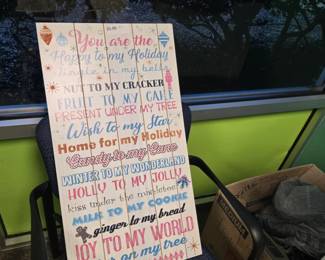 You are the
Happy to my Holiday
Jingle in my bells
NUT TO MY CRACKER
FRUIT TO MY CAKE
PRESENT UNDER MY TREE
Wish to my Star
Home for my Holiday
Candy to my Cane
WINTER TO MY WONDERLAND
HOLLY TO MY JOLLY
kiss under the mistletoe
MILK TO MY COOKIE
ginger to my bread
JOY TO MY WORLD
on my tree